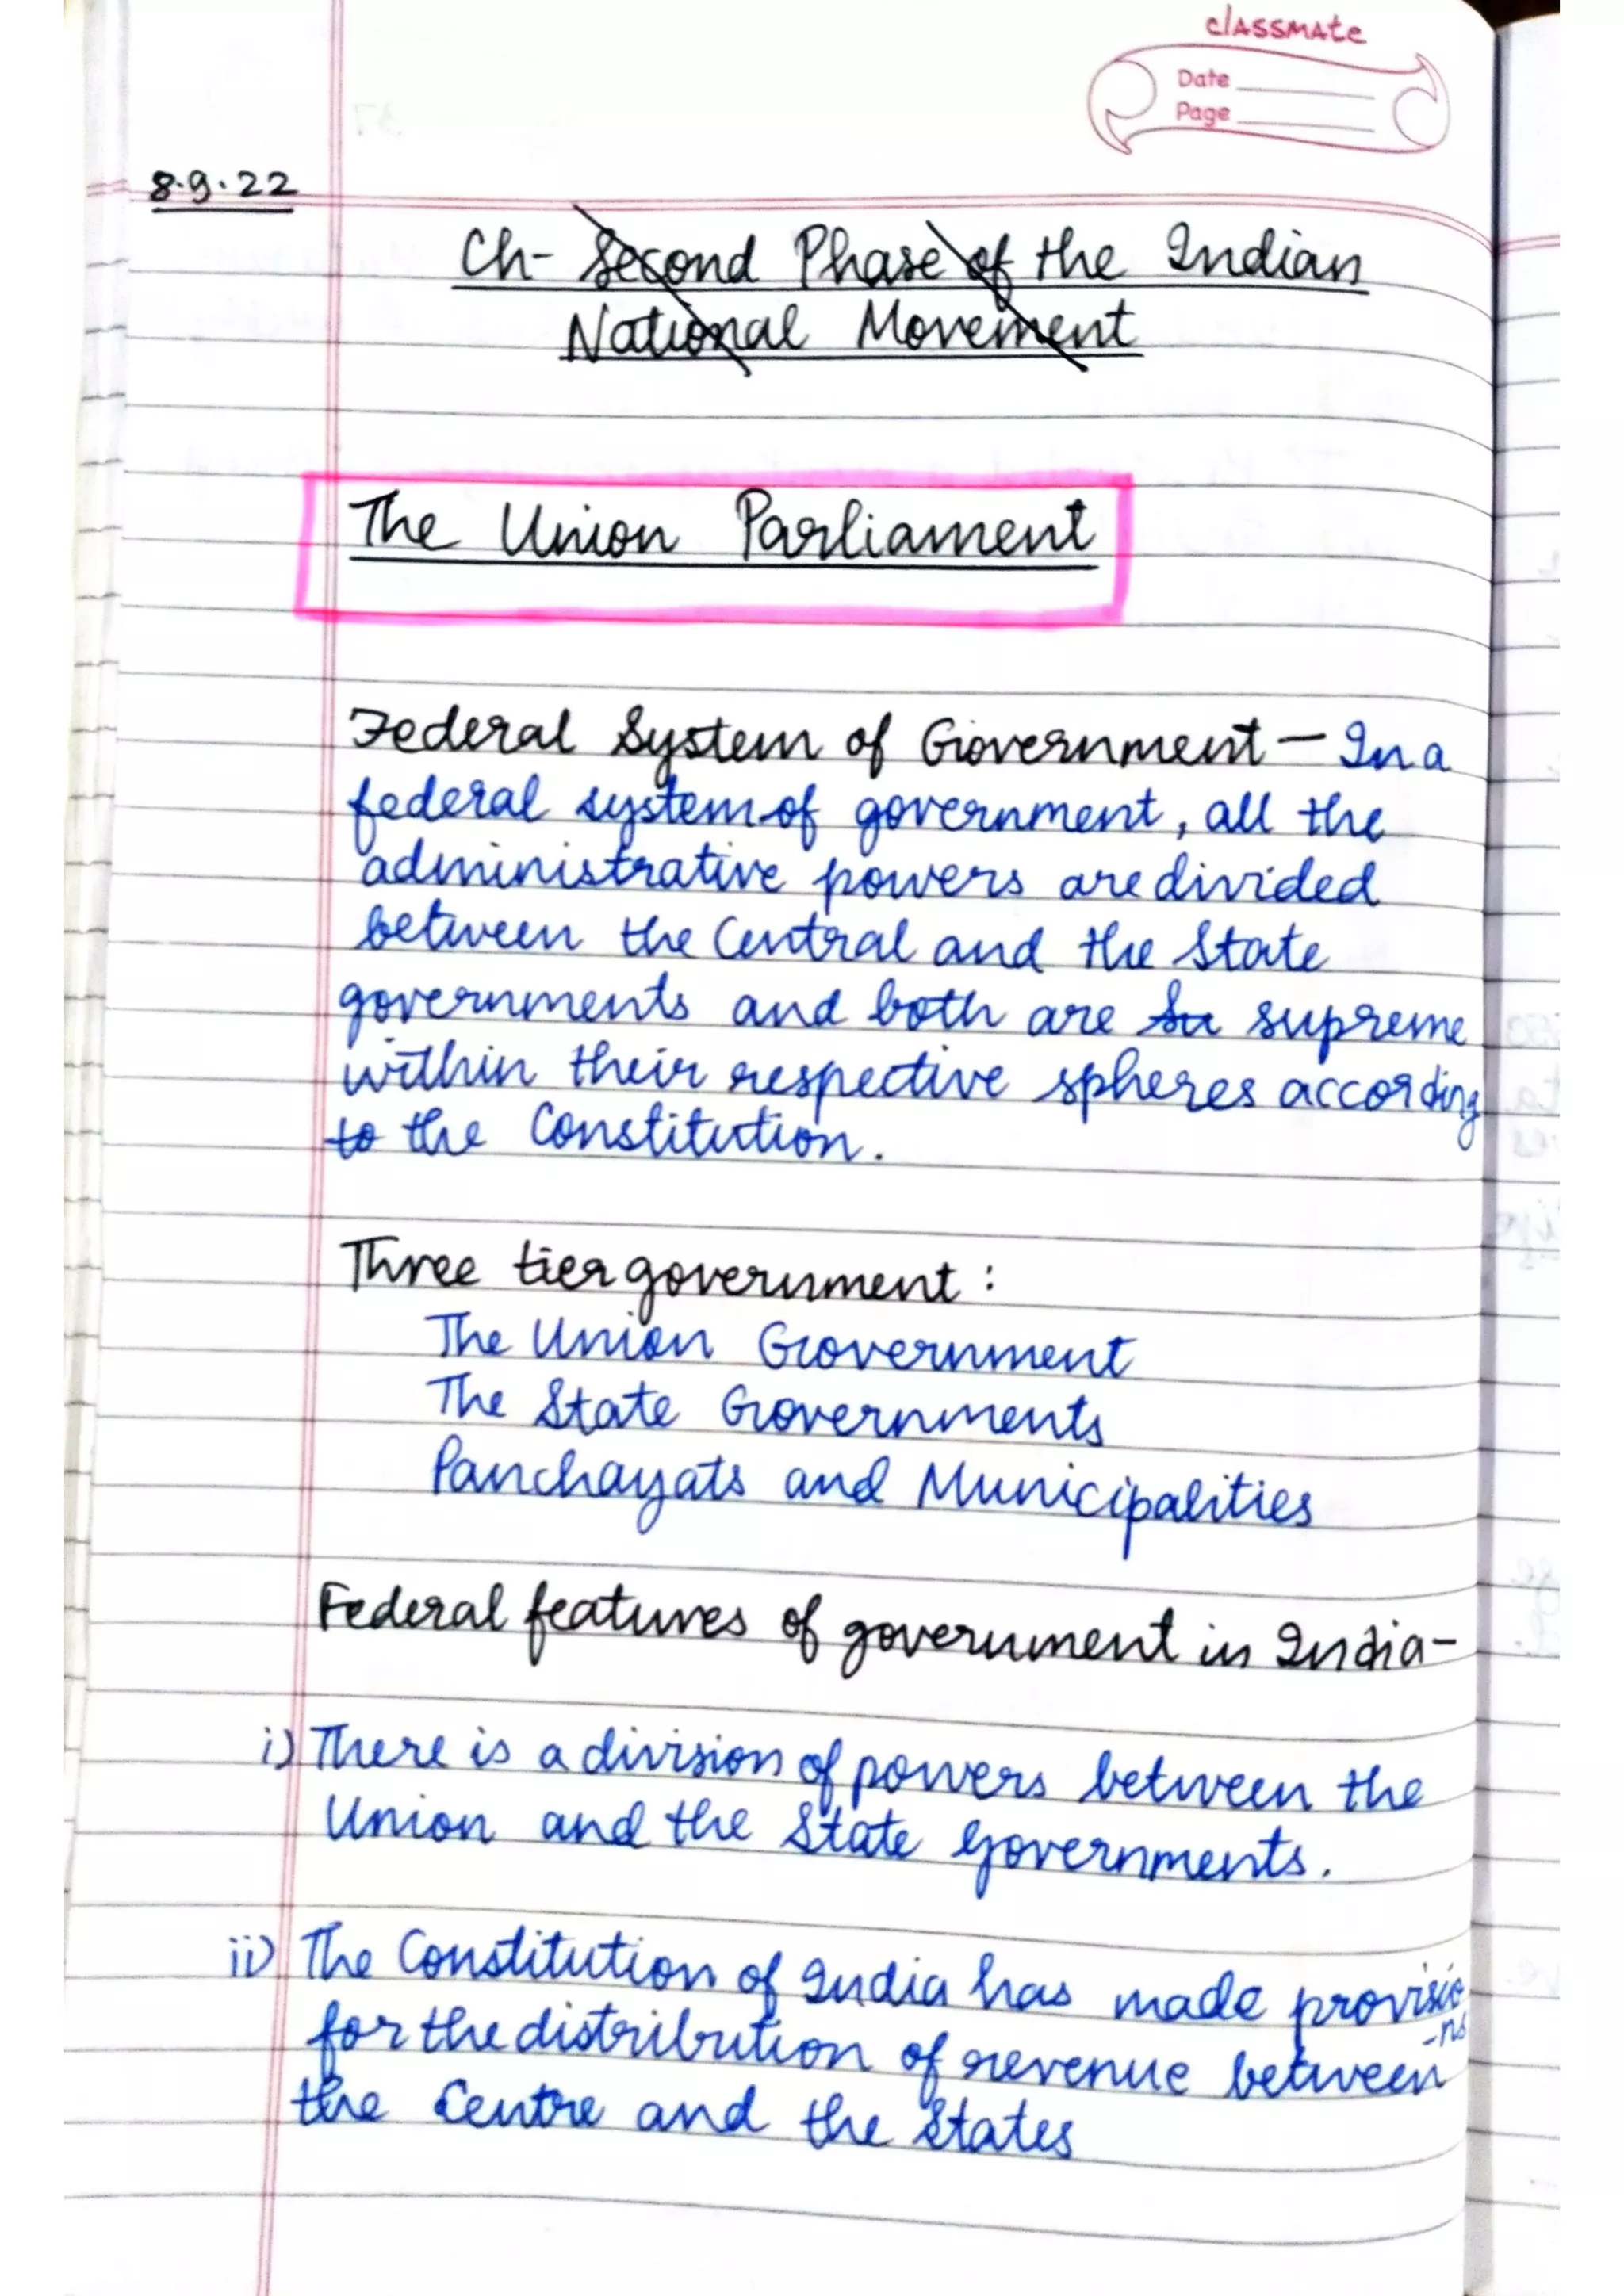 classmate
Date
Page
8.9.22
Ch- Second Phase of the Indian
National Movement
The Union Parliament
Federal System of Government - In a
federal system of government, all the
administrative powers are divided
between the Central and the State
governments and both are su supreme
within their respective spheres according
to the Constitution.
Three tier government :
The Union Government
The State Governments
Panchayats and Municipalities
Federal features of government in India-
i) There is a division of powers between the
Union and the State Governments.
ii) The Constitution of India has made provisio
-ns
for the distribution of revenue between
the Centre and the States